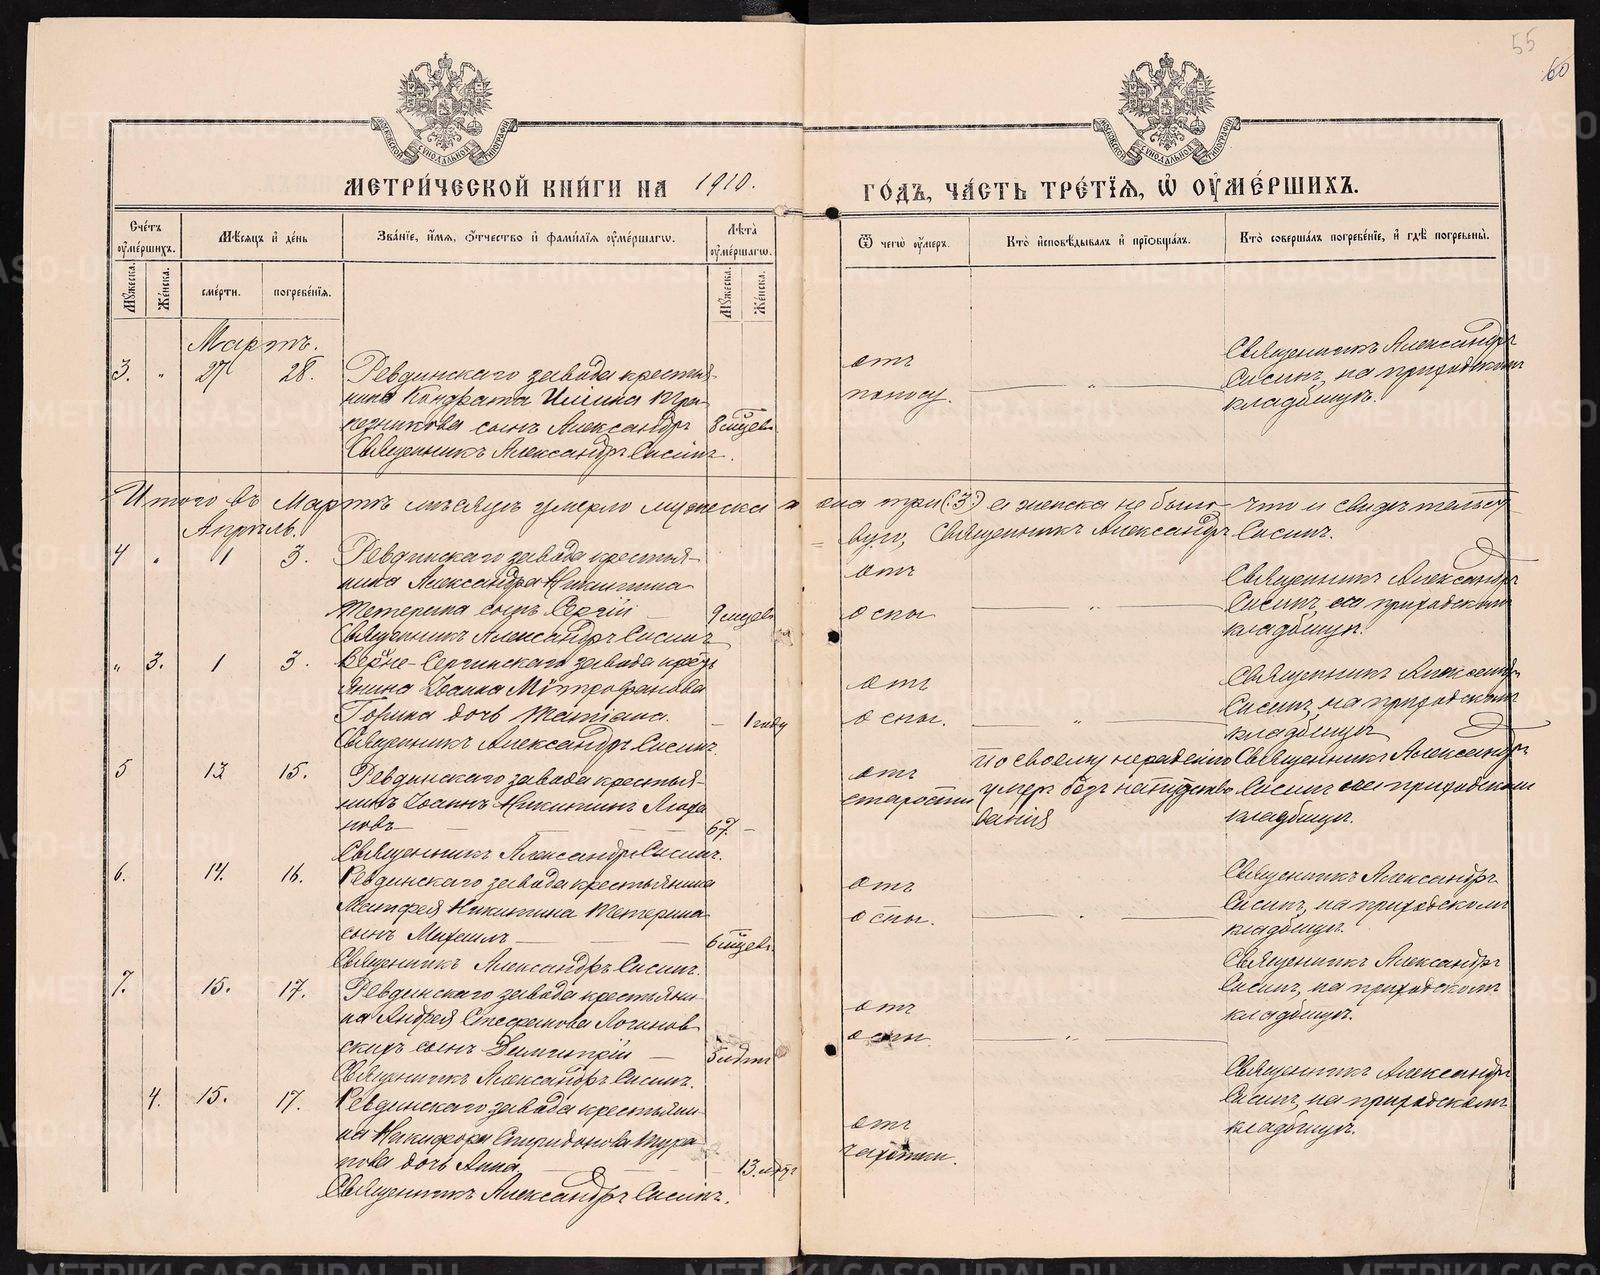 55
60
МЕТРИ́ЧЕСКОЙ КНИ́ГИ НА 1910.
ГО́ДЪ, ЧА́СТЬ ТРЕ́ТІѦ, Ѡ҆ ОУ҆МЕ́РШИХЪ.
Сче́тъ оу҆ме́ршихъ.
Мꙋ́жеска.
Же́нска.
Мѣ́сѧцъ и҆ де́нь
сме́рти.
погребе́нїѧ.
Зва́нїе, и҆́мѧ, ѻ҆́тчество и҆ фами́лїѧ оу҆ме́ршагѡ.
Лѣ̀та оу҆ме́ршагѡ.
Мꙋ́жеска.
Же́нска.
Ѿ чегѡ̀ оу҆́меръ.
Кто̀ и҆сповѣ́дывалъ и҆ прїѡбща́лъ.
Кто̀ соверша́лъ погребе́нїе, и҆ гдѣ̀ погребены̀.
Мартъ.
3. " 27 28.
Ревдинскаго завода крестья-
нина Кондрата
сынъ Александръ
8 мцевъ
Священникъ Александръ Сисинъ.
отъ
поносу.
Священникъ Александръ
Сисинъ, на приходскомъ
кладбищѣ.
Итого въ Мартѣ мѣсяцѣ умерло мужеска пола три (:3:) а женска не было что и свидѣтельст
вую, Священникъ Александръ Сисинъ.
Апрѣль.
4 " 1 3.
Ревдинскаго завода крестья-
нина Александра Никитина
Тетерина сынъ Сергій
9 мцевъ
Священникъ Александръ Сисинъ
отъ
оспы
Священникъ Александръ
Сисинъ, на приходскомъ
кладбищѣ.
" 3. 1 3.
Верхне-Сергинскаго завода кресть
янина Іоанна Митрофанова
Горина дочь Татіана.
1 году
Священникъ Александръ Сисинъ
отъ
оспы.
Священникъ Александръ
Сисинъ, на приходскомъ
кладбищѣ
5 13 15.
Ревдинскаго завода крестья-
нинъ Іоаннъ Никитинъ
новъ
67.
Священникъ Александръ Сисинъ.
отъ
старости
По своему нерадѣнію
умеръ безъ напутство
ванія
Священникъ Александръ
Сисинъ на приходскомъ
кладбищѣ.
6. 14. 16.
Ревдинскаго завода крестьянина
Матфея Никитина Тетерина
сынъ Михаилъ
6 мцевъ
Священникъ Александръ Сисинъ.
отъ
оспы.
Священникъ Александръ
Сисинъ, на приходскомъ
кладбищѣ.
7. 15. 17.
Ревдинскаго завода крестьяни-
на Андрея Стефанова Логинов
скихъ сынъ Димитрій
5 лѣтъ
Священникъ Александръ Сисинъ.
отъ
оспы.
Священникъ Александръ
Сисинъ, на приходскомъ
кладбищѣ.
4. 15. 17.
Ревдинскаго завода крестьяни-
на Никифора Спиридонова
дочь Анна
13. лѣтъ
Священникъ Александръ Сисинъ.
отъ
чахотки.
Священникъ Александръ
Сисинъ, на приходскомъ
кладбищѣ.
METRIKI.GASO-URAL.RU